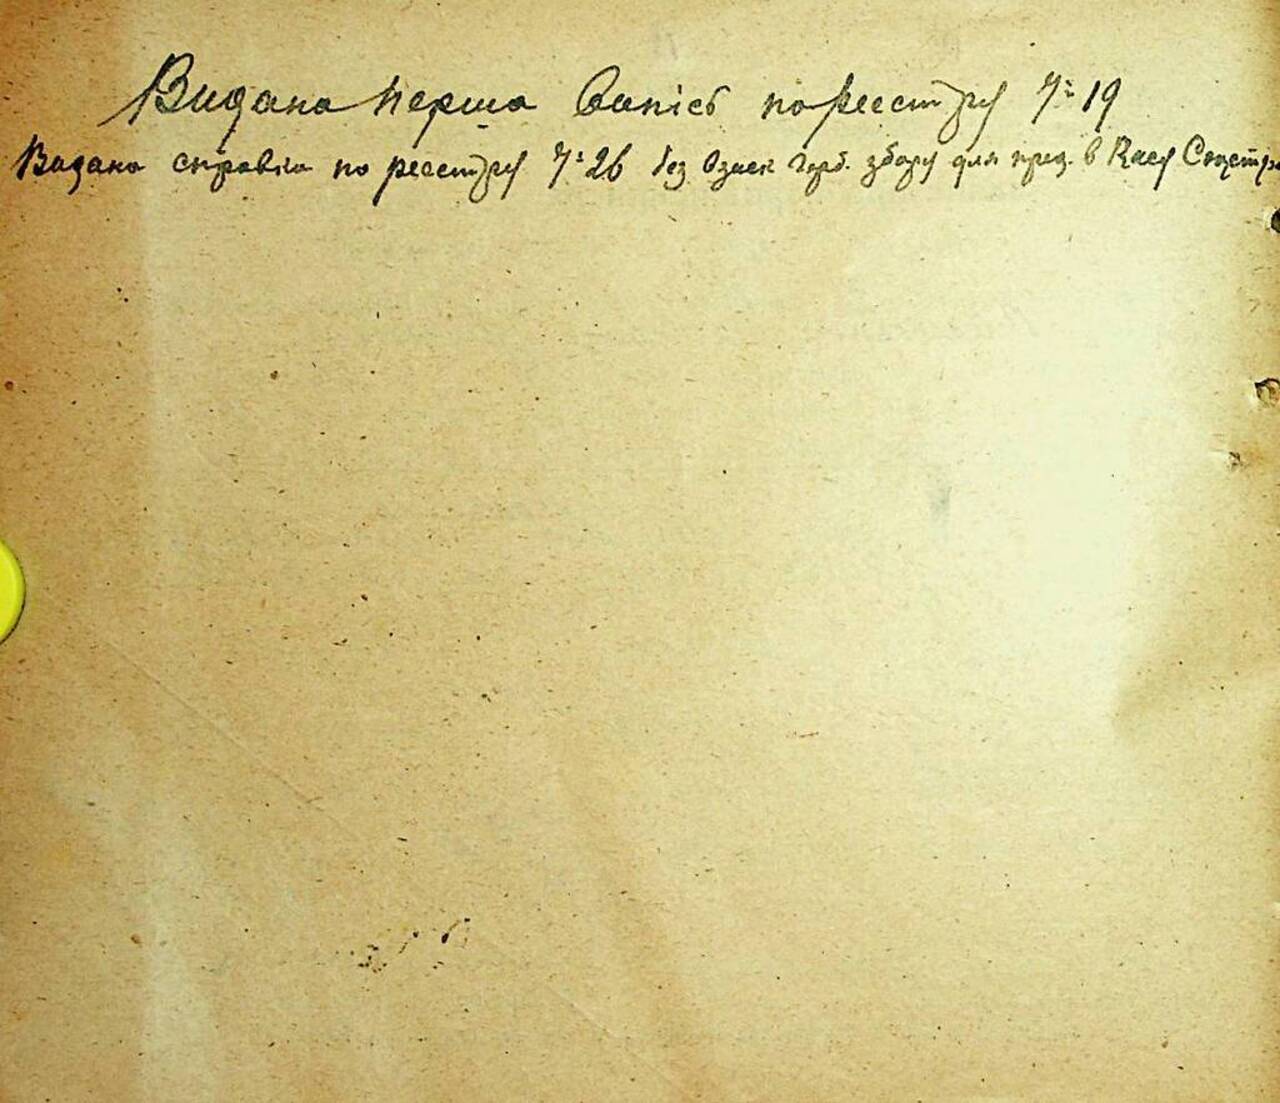 Видана перша випісь по реестру № 19
Видана справка по реестру № 26 без взиск герб. збору для пред. в Касу Соцстра